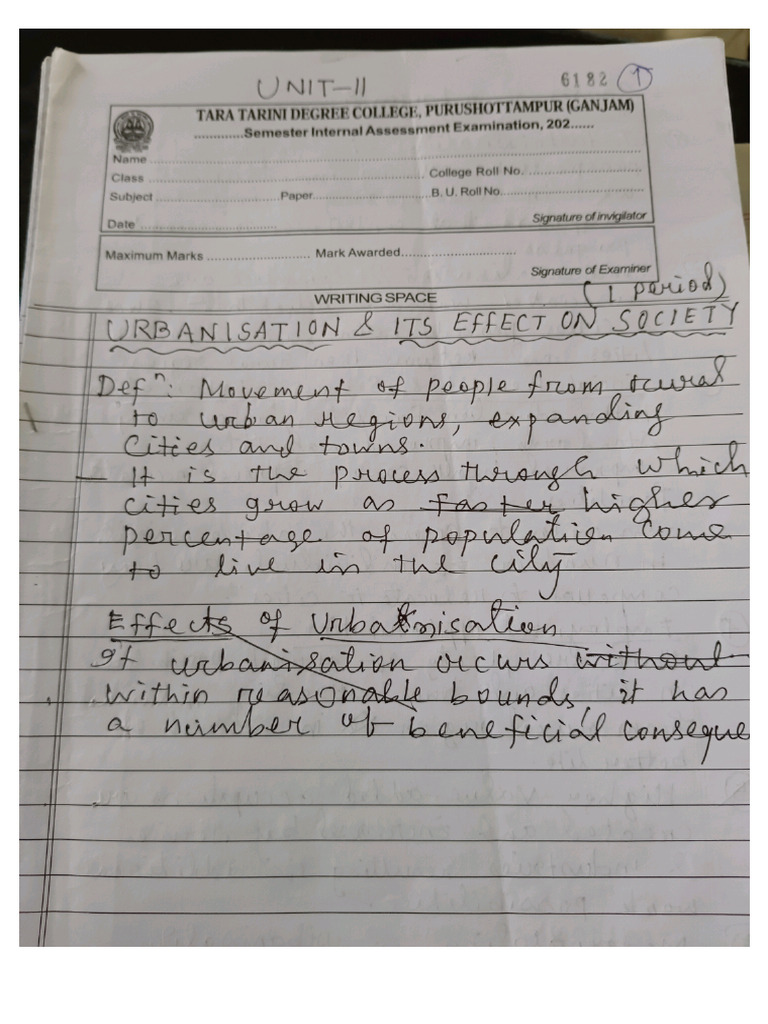 UNIT-II
6182 1
TARA TARINI DEGREE COLLEGE, PURUSHOTTAMPUR (GANJAM)
.............Semester Internal Assessment Examination, 202......
Name
Class College Roll No.
Subject Paper B. U. Roll No.
Date Signature of invigilator
Maximum Marks Mark Awarded
Signature of Examiner
WRITING SPACE
(1 period)
URBANISATION & ITS EFFECT ON SOCIETY
Defn: Movement of people from rural
to urban regions, expanding
cities and towns.
- It is the process through which
cities grow as faster higher
percentage of population come
to live in the city
Effects of Urbanisation
If urbanisation occurs without
within reasonable bounds, it has
a number of beneficial conseque